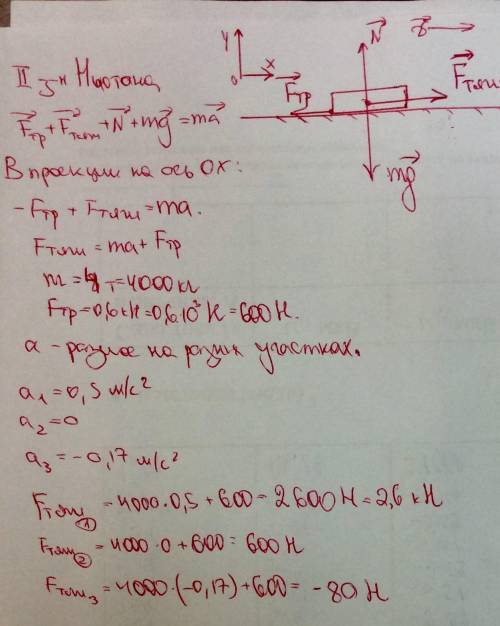 II з-н Ньютона
F⃗тр + F⃗тяги + N⃗ + mg⃗ = ma⃗
В проекции на ось OX:
- Fтр + Fтяги = ma.
Fтяги = ma + Fтр
m = 4 т = 4000 кг
Fтр = 0,6 кН = 0,6·10³ Н = 600 Н.
a - разное на разных участках.
a₁ = 0,5 м/с²
a₂ = 0
a₃ = -0,17 м/с²
Fтяги₁ = 4000·0,5 + 600 = 2600 Н = 2,6 кН
Fтяги₂ = 4000·0 + 600 = 600 Н
Fтяги₃ = 4000·(-0,17) + 600 = -80 Н
Y
0
X
F⃗тр
N⃗
F⃗тяги
mg⃗